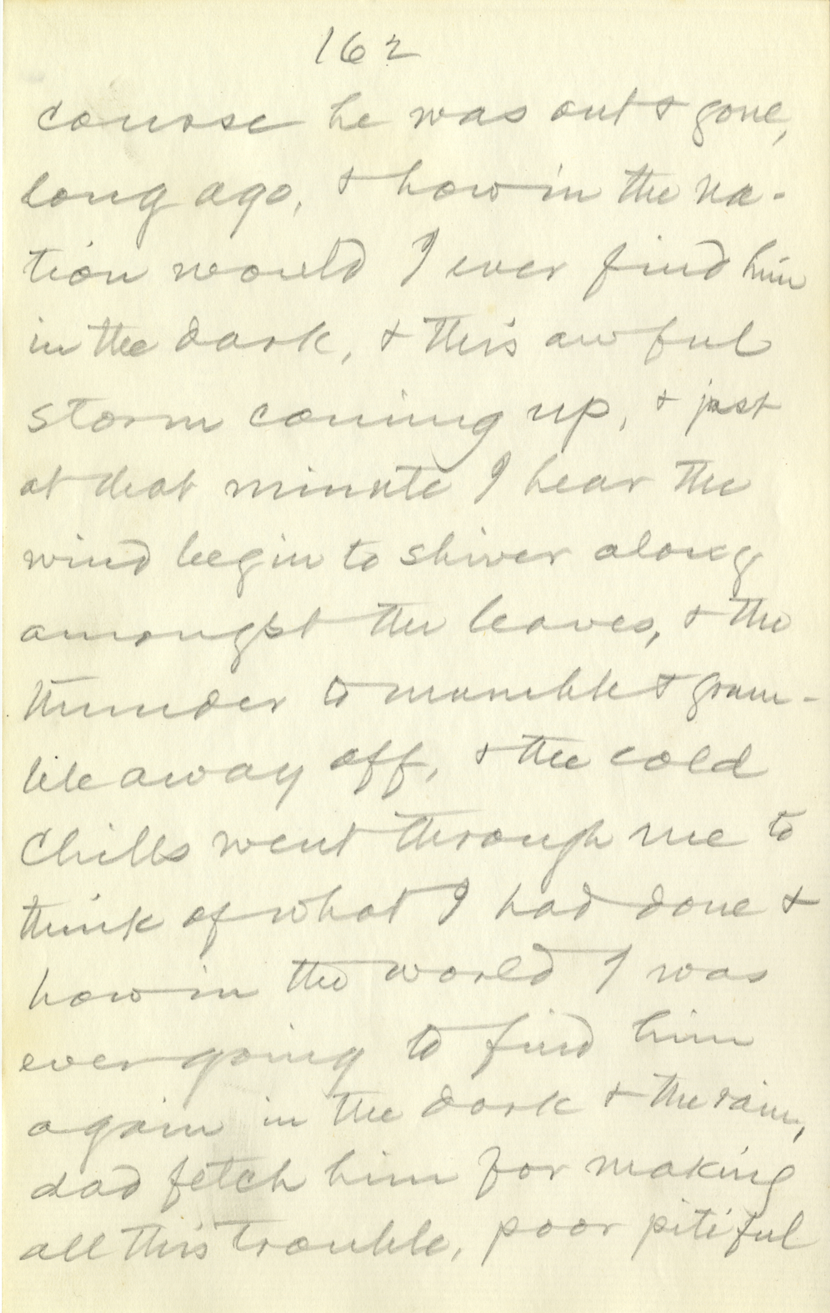 162
course he was out & gone,
long ago, & how in the na-
tion would I ever find him
in the dark, & this awful
storm coming up, & just
at that minute I hear the
wind begin to shiver along
amongst the leaves, & the
thunder to mumble & grum-
ble away off, & the cold
chills went through me to
think of what I had done &
how in the world I was
ever going to find him
again in the dark & the rain,
dad fetch him for making
all this trouble, poor pitiful